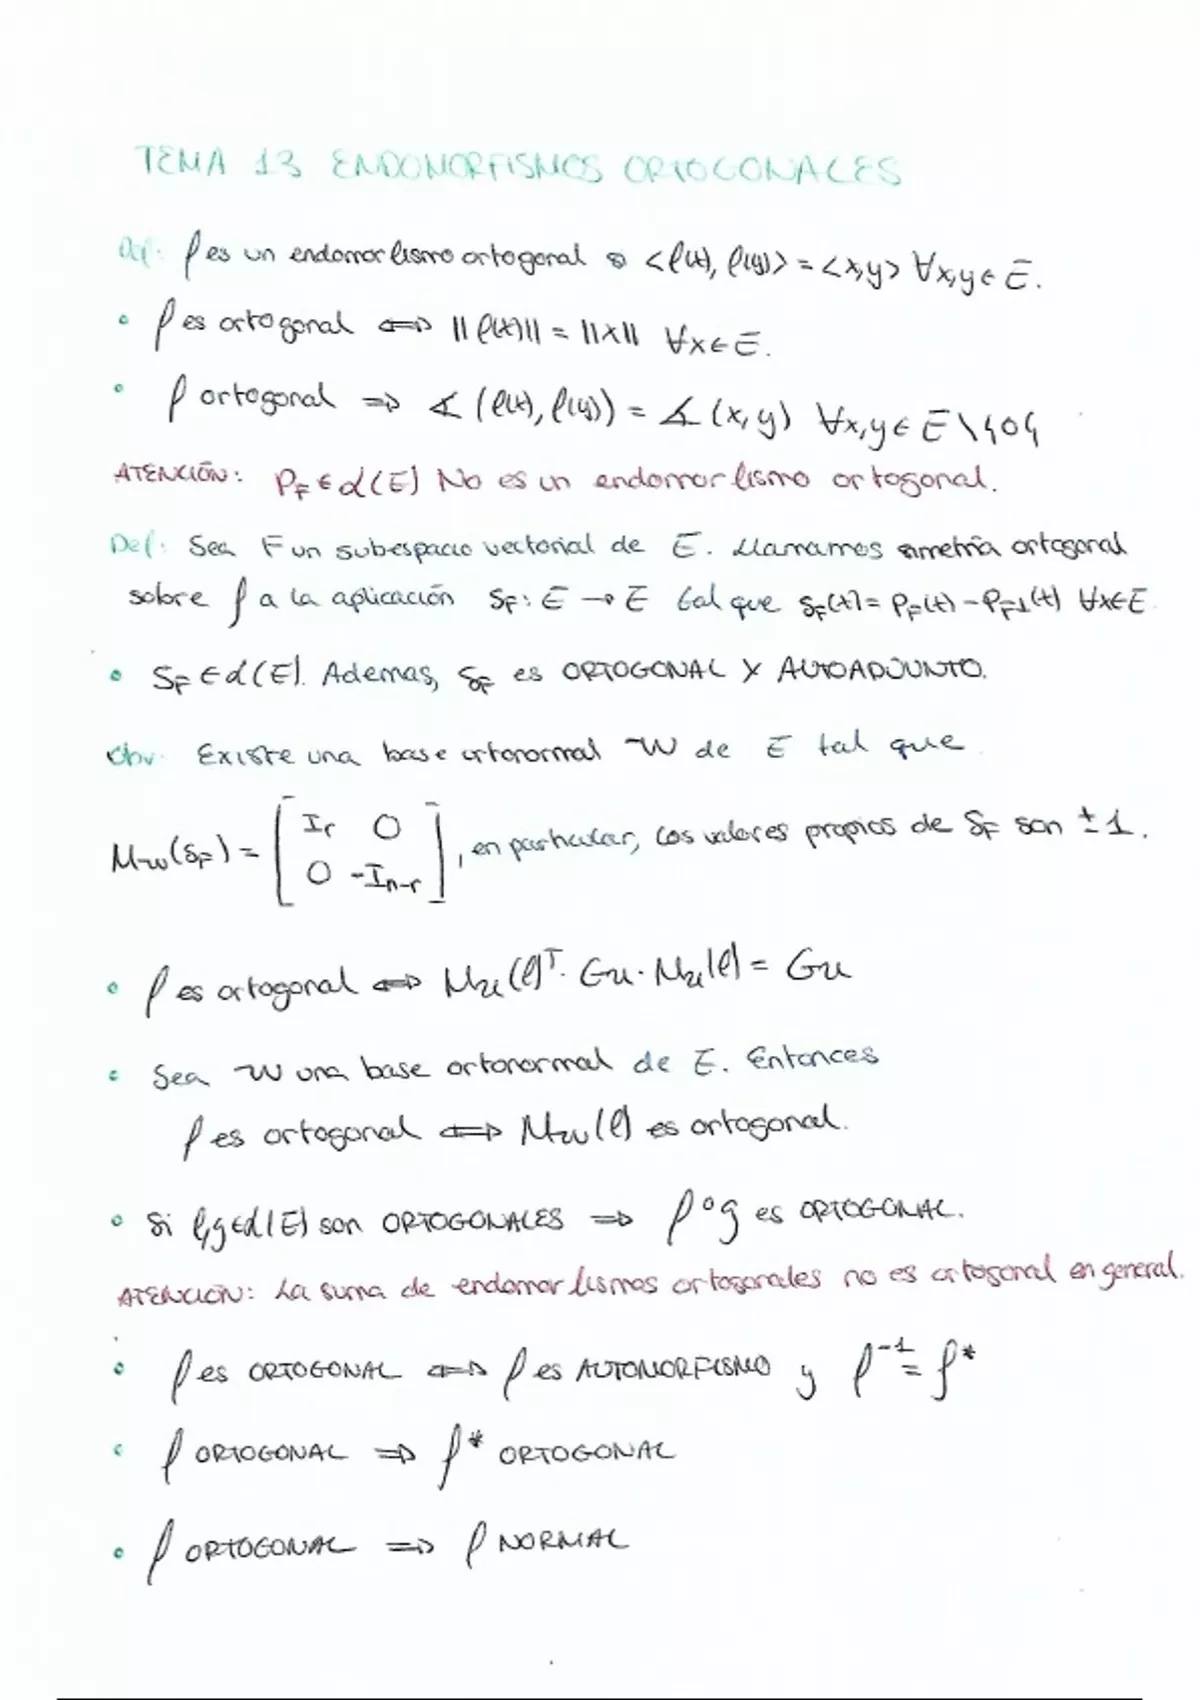 TEMA 13 ENDOMORFISMOS ORTOGONALES
Def: f es un endomorfismo ortogonal si <f(x), f(y)> = <x,y> ∀x,y ∈ E.
• f es ortogonal ⟺ ||f(x)|| = ||x|| ∀x ∈ E.
• f ortogonal ⟹ ∡(f(x), f(y)) = ∡(x, y) ∀x,y ∈ E\{0}
ATENCIÓN: P_F ∈ L(E) No es un endomorfismo ortogonal.
Def: Sea F un subespacio vectorial de E. Llamamos simetría ortogonal
sobre f a la aplicación S_F: E → E tal que S_F(x) = P_F(x) - P_F⊥(x) ∀x∈E
• S_F ∈ L(E). Ademas, S_F es ORTOGONAL Y AUTOADJUNTO.
Obv. Existe una base ortonormal W de E tal que
M_W(S_F) = [ I_r 0 ; 0 -I_n-r ], en particular, los valores propios de S_F son ±1.
• f es ortogonal ⟺ M_U(f)^T · G_U · M_U(f) = G_U
• Sea W una base ortonormal de E. Entonces
f es ortogonal ⟺ M_W(f) es ortogonal.
• Si f,g ∈ L(E) son ORTOGONALES ⟹ f∘g es ORTOGONAL.
ATENCIÓN: La suma de endomorfismos ortogonales no es ortogonal en general.
• f es ORTOGONAL ⟺ f es AUTOMORFISMO y f^-1 = f*
• f ORTOGONAL ⟹ f* ORTOGONAL
• f ORTOGONAL ⟹ f NORMAL